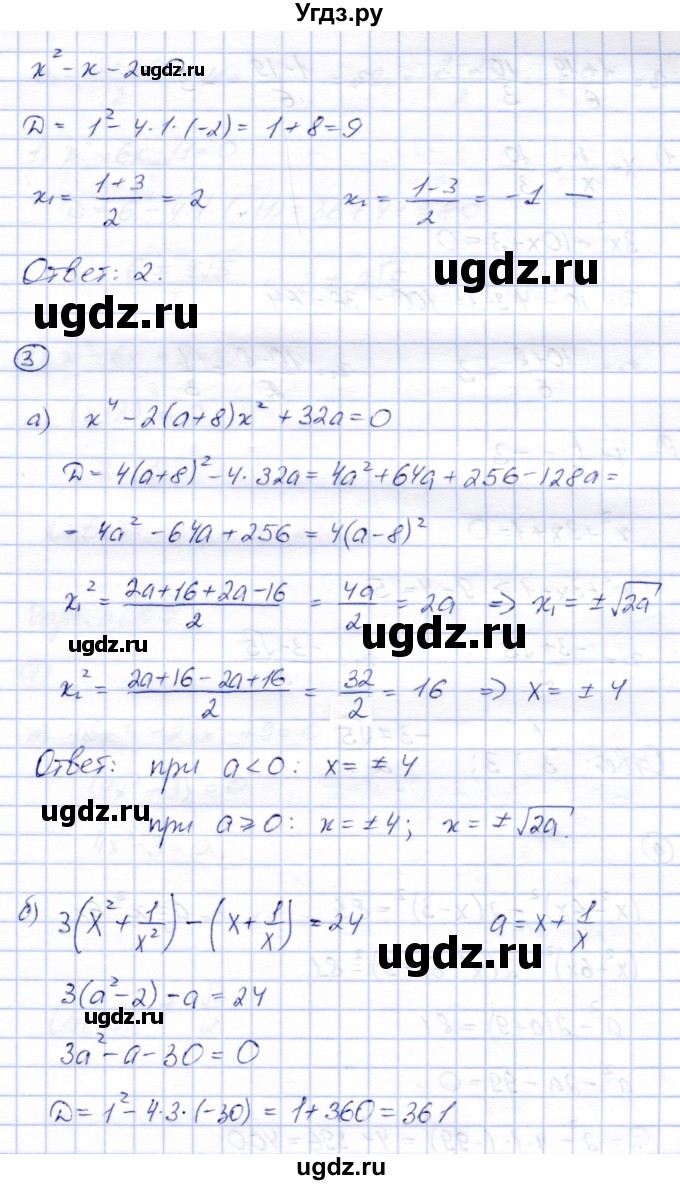 Угдз.ру
x² - x - 2 ugdz.ru
D = 1² - 4·1·(-2) = 1 + 8 = 9
x₁ = (1+3)/2 = 2 x₂ = (1-3)/2 = -1 —
Ответ: 2.
ugdz.ru
ugdz.ru
3
а) x⁴ - 2(a+8)x² + 32a = 0
D = 4(a+8)² - 4·32a = 4a² + 64a + 256 - 128a =
= 4a² - 64a + 256 = 4(a-8)²
x₁² = (2a+16+2a-16)/2 = 4a/2 = 2a ⇒ x₁ = ±√2a
ugdz.ru
ugdz.ru
x₂² = (2a+16-2a+16)/2 = 32/2 = 16 ⇒ x = ±4
Ответ: при a<0: x = ±4
ugdz.ru
при a⩾0: x = ±4; x = ±√2a.
б) 3(x² + 1/x²) - (x + 1/x) = 24 a = x + 1/x
ugdz.ru
3(a²-2) - a = 24
ugdz.ru
3a² - a - 30 = 0
D = 1² - 4·3·(-30) = 1 + 360 = 361
ugdz.ru